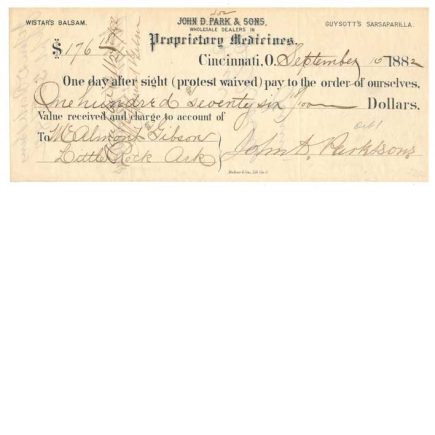 WISTAR'S BALSAM.
JOHN D. PARK & SONS,
GUYSOTT'S SARSAPARILLA.
WHOLESALE DEALERS IN
Proprietary Medicines.
$176
Cincinnati, O. September 10 1882
One day after sight (protest waived) pay to the order of ourselves,
One hundred & seventy six /100 Dollars.
Value received and charge to account of
To McAlmont & Gibson
Little Rock Ark
John D. Park & Sons